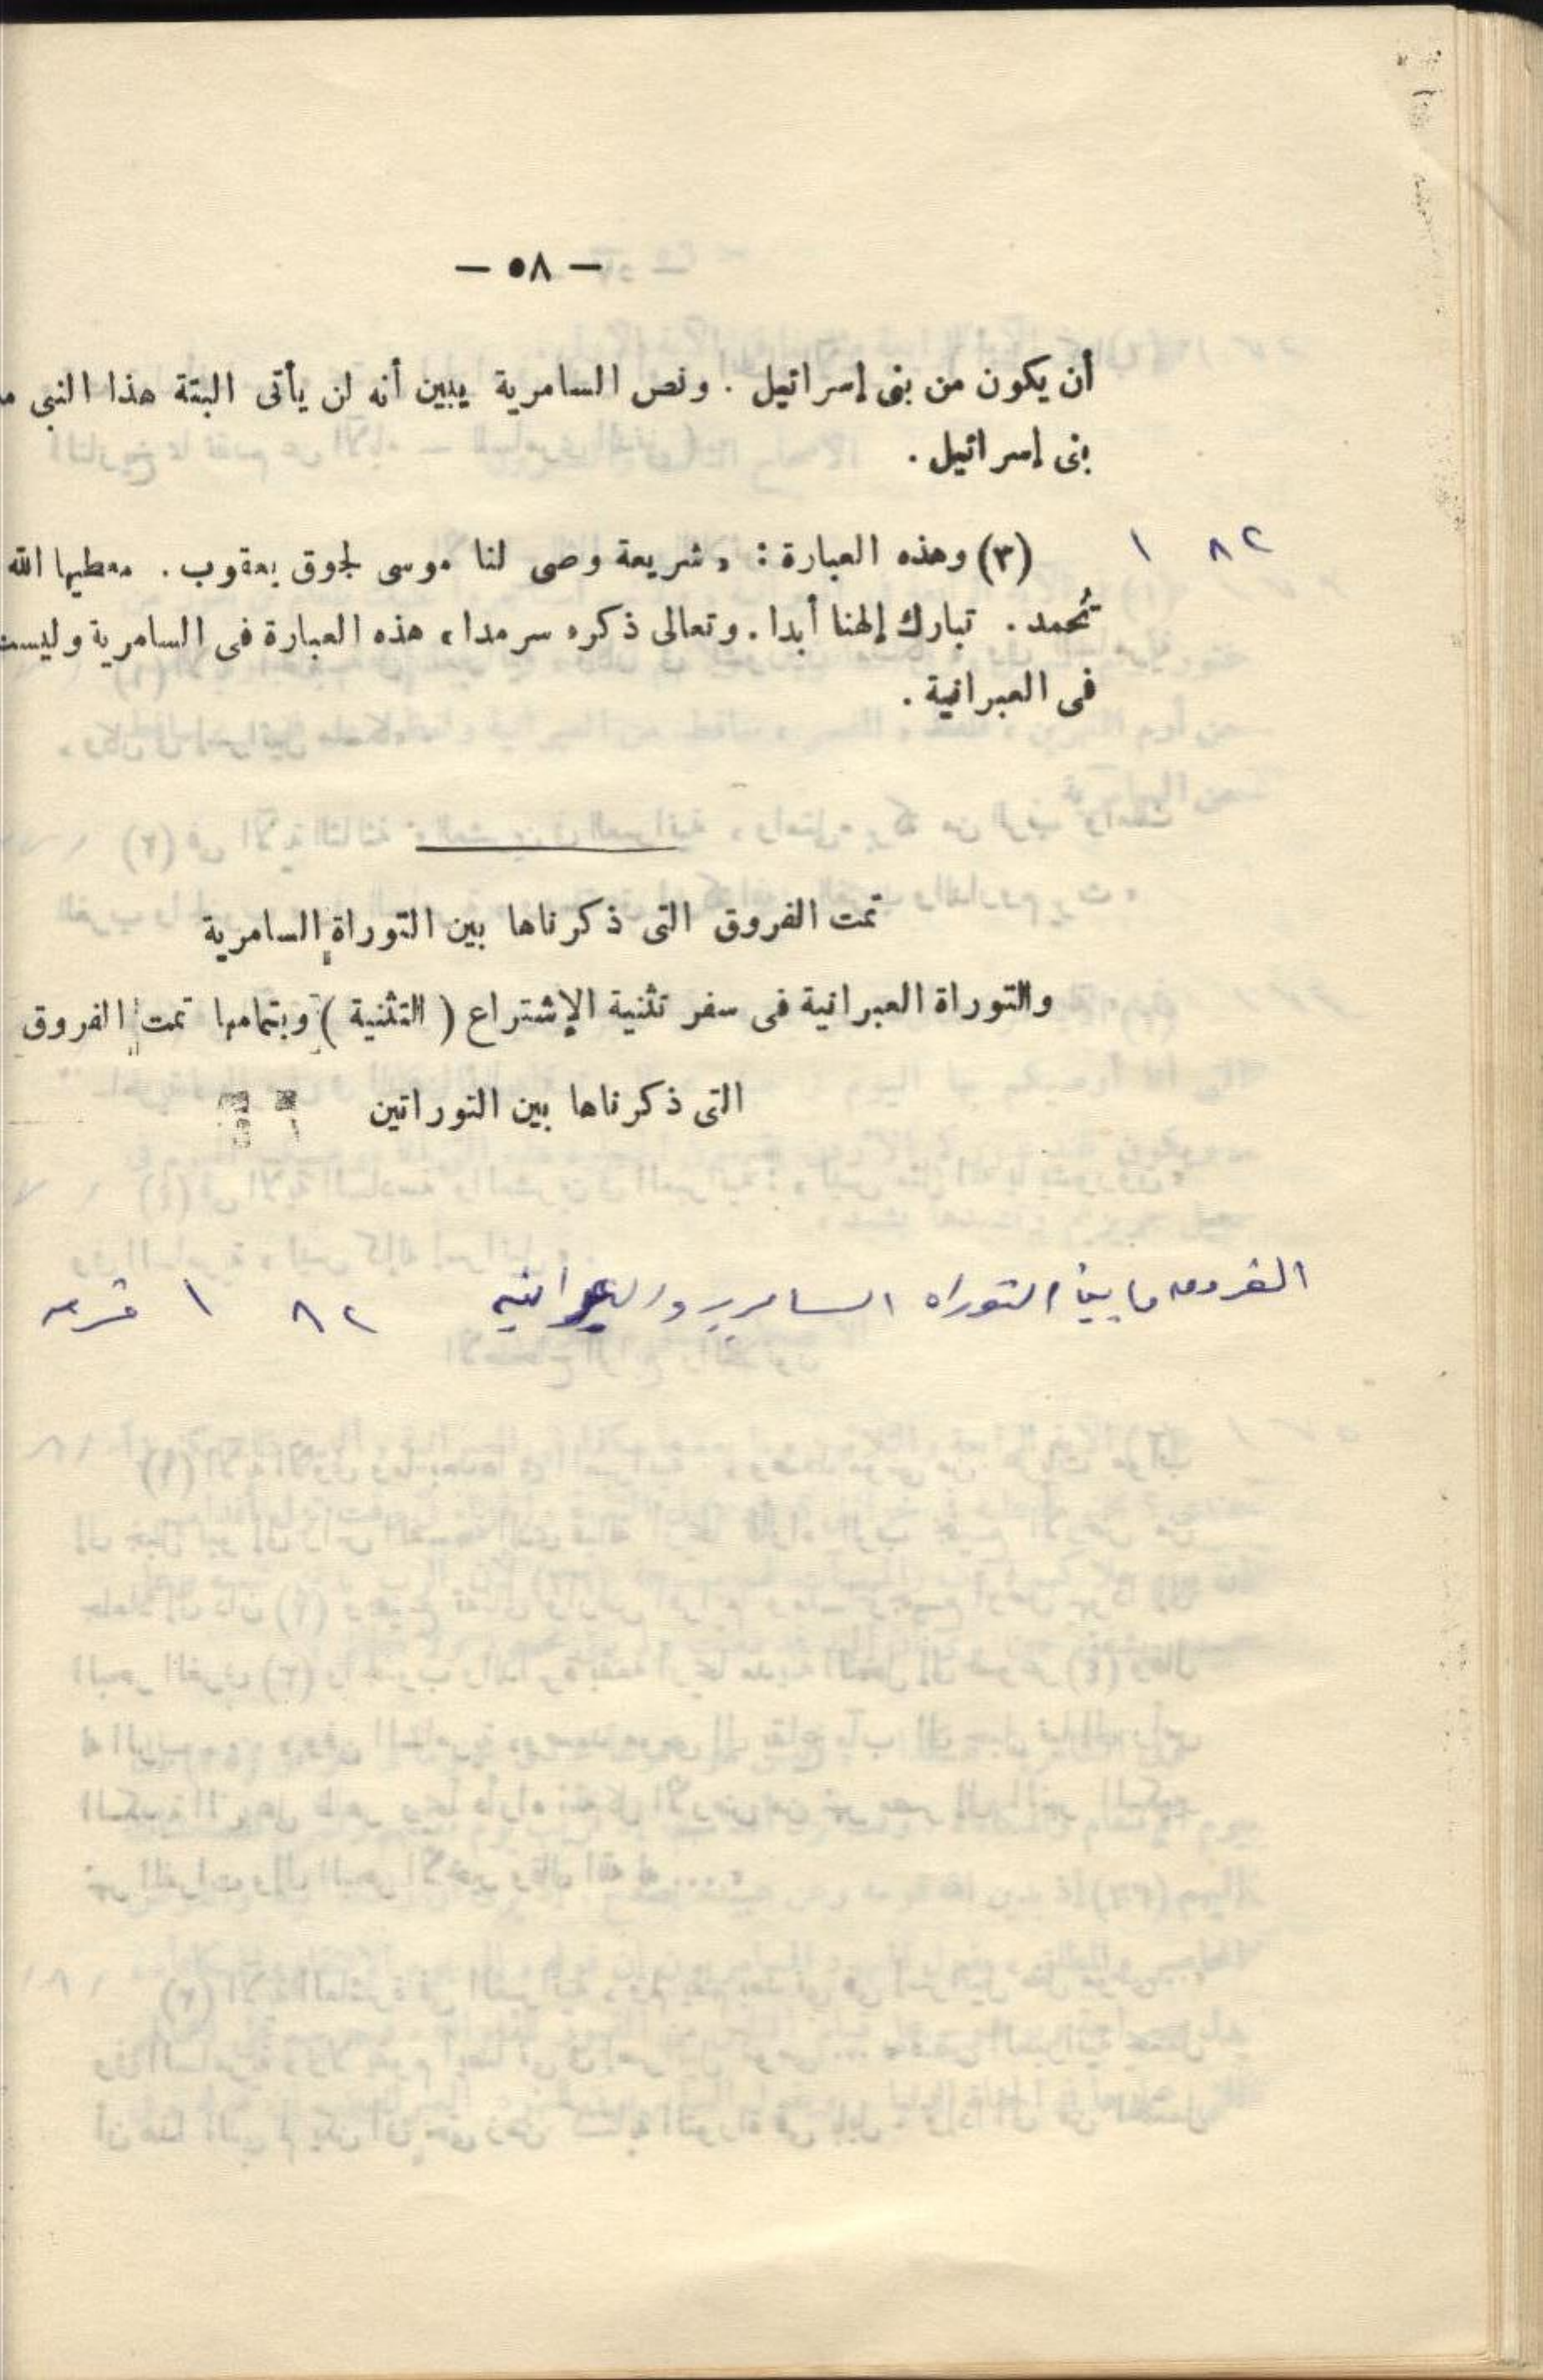 — ٥٨ —
أن يكون من بنى إسرائيل . ونص السامرية يبين أنه لن يأتى البتة هذا النبى
بنى إسرائيل .
٨٢ ١ (٣) وهذه العبارة : « شريعة وصى لنا موسى لجوق يعقوب . معطيها الله
تُحمد . تبارك إلهنا أبدا . وتعالى ذكره سرمدا » هذه العبارة فى السامرية وليست
فى العبرانية .
تمت الفروق التى ذكرناها بين التوراة السامرية
والتوراة العبرانية فى سفر تثنية الإشتراع ( التثنية ) وبتمامها تمت الفروق
التى ذكرناها بين التوراتين
الفروق ما بين التوراه السامريه والعبرانيه ٨٢ ١